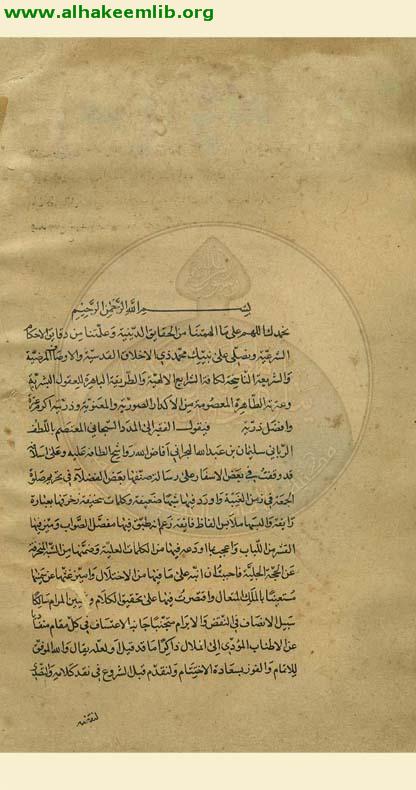 www.alhakeemlib.org
بسم الله الرحمن الرحيم
نحمدك اللهم على ما الهمتنا من الحقايق الدينية وعلمتنا من دقايق الاحكام
الشرعية ونصلي على نبيك محمد ذي الاخلاق القدسية والاوصاف المرضية
والشريعة الناسخة لكافة الشرايع الالهية والطريقة الباهرة للعقول البشرية
وعترته الطاهرة المعصومة من الاكدار الصورية والمعنوية وذريته اكرم عترة
وافضل ذرية فيقول الفقير الى المدد السبحاني المعتصم باللطف
الرباني سليمان بن عبد الله البحراني افاض الله رواشح الطافه عليه وعلى اسلافه
قد وقفت في بعض الاسفار على رسالة صنفها بعض الفضلاء في تحريم صلوة
الجمعة في زمن الغيبة واورد فيها شبها ضعيفة وكلمات سخيفة زخرفها بعبارة
رايقة والبسها ملابس الفاظ فايقة زعم انه طبق فيها مفصل الصواب وميز فيها
القشر من اللباب واعجب بما اودعه فيها من الكلمات العلية وضمنها من الشبه المنحرفة
عن المحجة الجلية فاحببت ان انبه على ما فيها من الاختلال واميز غثها عن سمينها
مستعينا بالملك المتعال واقتصرت فيها على تحقيق الكلام وتبيين المرام سالكا
سبيل الانصاف في النقض والابرام متجنبا جانب الاعتساف في كل مقام
عن الاطناب المؤدي الى الملال ذاكرا ما قد قيل او لعله يقال والله الموفق
للاتمام والفوز بسعادة الاختتام ولنقدم قبل الشروع في نقد كلامه